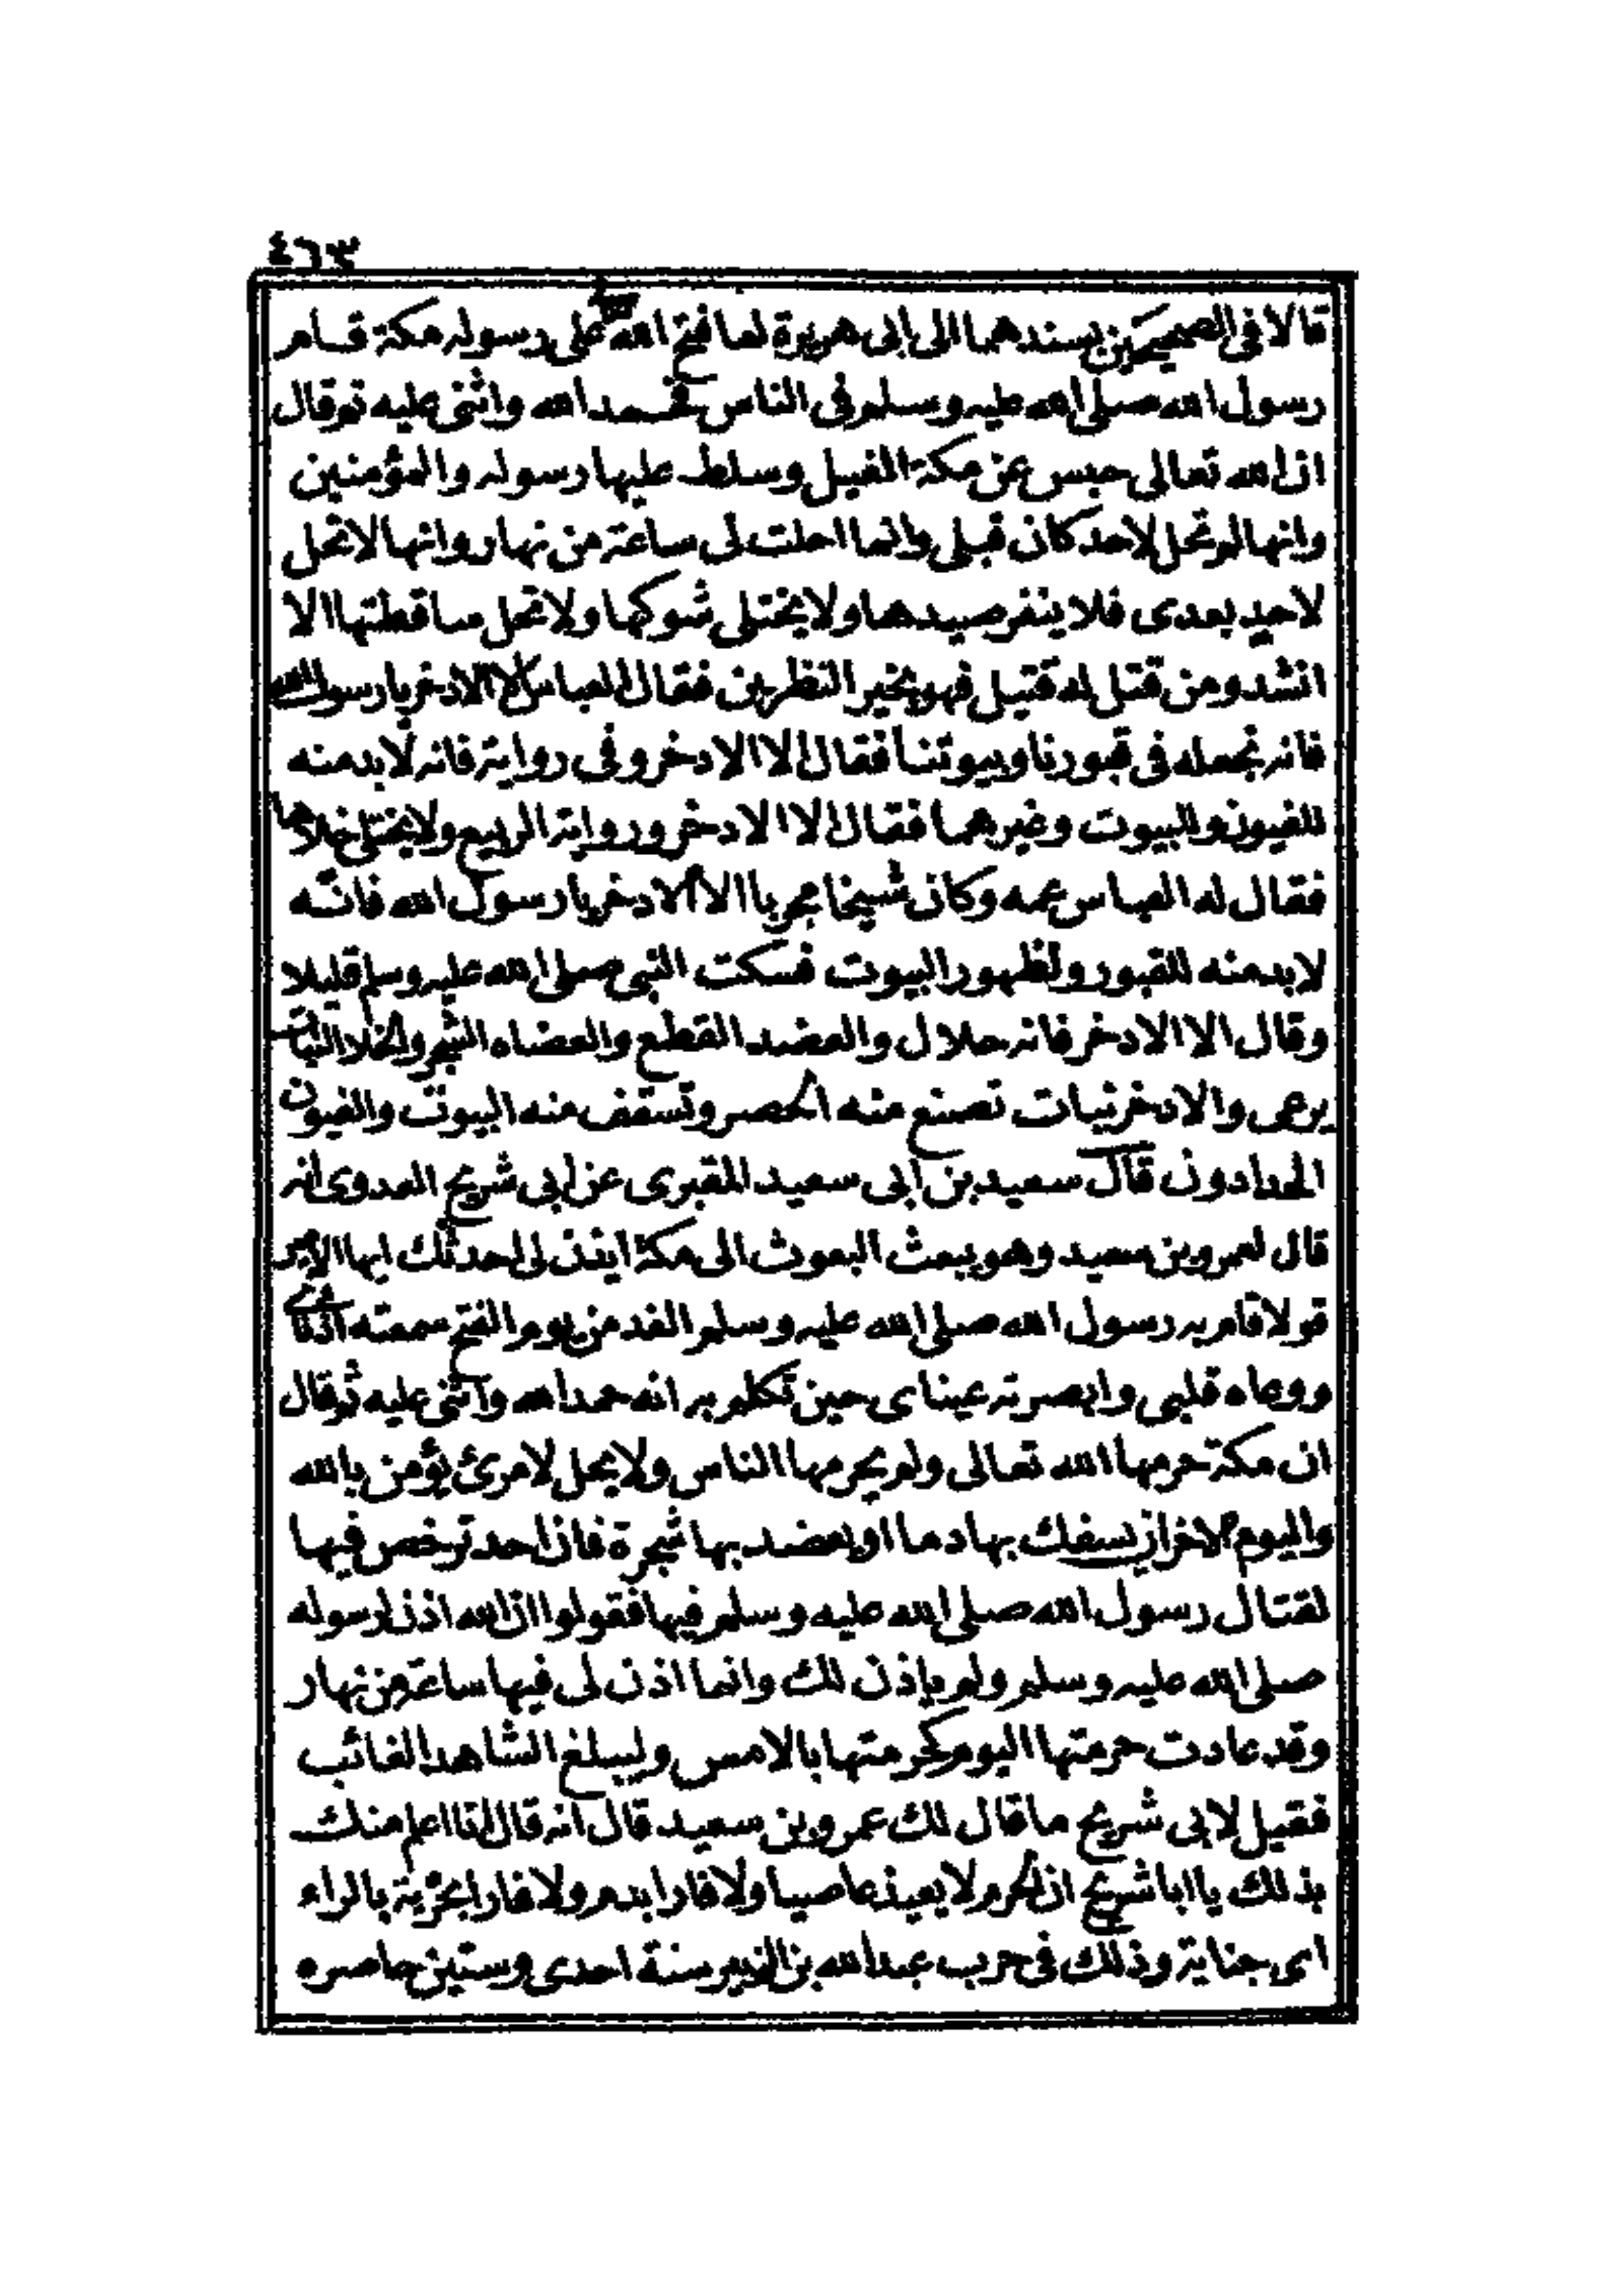 ٤٦٣
قالا فى الصحيحين بسندهما الى ابى هريرة لما فتح الله على رسوله مكة قام
رسول الله صلى الله عليه وسلم فى الناس فحمد الله واثنى عليه ثم قال
ان الله تعالى حبس عن مكة الفيل وسلط عليها رسوله والمؤمنين
وانها لم تحل لاحد كان قبلى وانما احلت لى ساعة من نهار وانها لا تحل
لاحد بعدى فلا ينفر صيدها ولا يختلى شوكها ولا تحل ساقطتها الا
انشد ومن قتل له قتيل فهو بخير النظرين فقال العباس الا الادخر يا رسول الله
فانه نجعله فى قبورنا وبيوتنا فقال الا الادخر وفى رواية فانه لا بد منه
للقيون والبيوت وغيرهما فقال الا الادخر ورواية الربيع ولا يختلى خلاها
فقال له العباس عمه وكان شيخا مجربا الا الادخر يا رسول الله فانه
لا بد منه للقبور ولظهور البيوت فسكت النبى صلى الله عليه وسلم قليلا
وقال الا الادخر فانه حلال والعضد القطع والعضاه الشجر والخلا النبات
يرعى والادخر نبات تصنع منه الحصر وتسقف منه البيوت والقيون
الحدادون قال سعيد بن ابى سعيد المقبرى عن ابى شريح العدوى انه
قال لعمرو بن سعيد وهو يبعث البعوث الى مكة ايذن لى احدثك ايها الامير
قولا قام به رسول الله صلى الله عليه وسلم الغد من يوم الفتح سمعته اذناى
ووعاه قلبى وابصرته عيناى حين تكلم به انه حمد الله واثنى عليه ثم قال
ان مكة حرمها الله تعالى ولم يحرمها الناس ولا يحل لامرئ يؤمن بالله
واليوم الاخر ان يسفك بها دما او يعضد بها شجرة فان احد ترخص فيها
لقتال رسول الله صلى الله عليه وسلم فيها فقولوا ان الله اذن لرسوله
صلى الله عليه وسلم ولم ياذن لك وانما اذن لى فيها ساعة من نهار
وقد عادت حرمتها اليوم كحرمتها بالامس وليبلغ الشاهد الغائب
فقيل لابى شريح ما قال لك عمرو بن سعيد قال انه قال انا اعلم منك
بذلك يا ابا شريح ان الحرم لا يعيذ عاصيا ولا فارا بدم ولا فارا بخربة بالراء
اى جناية وذلك فى حرب عبد الله بن الزبير سنة احدى وستين حاصره